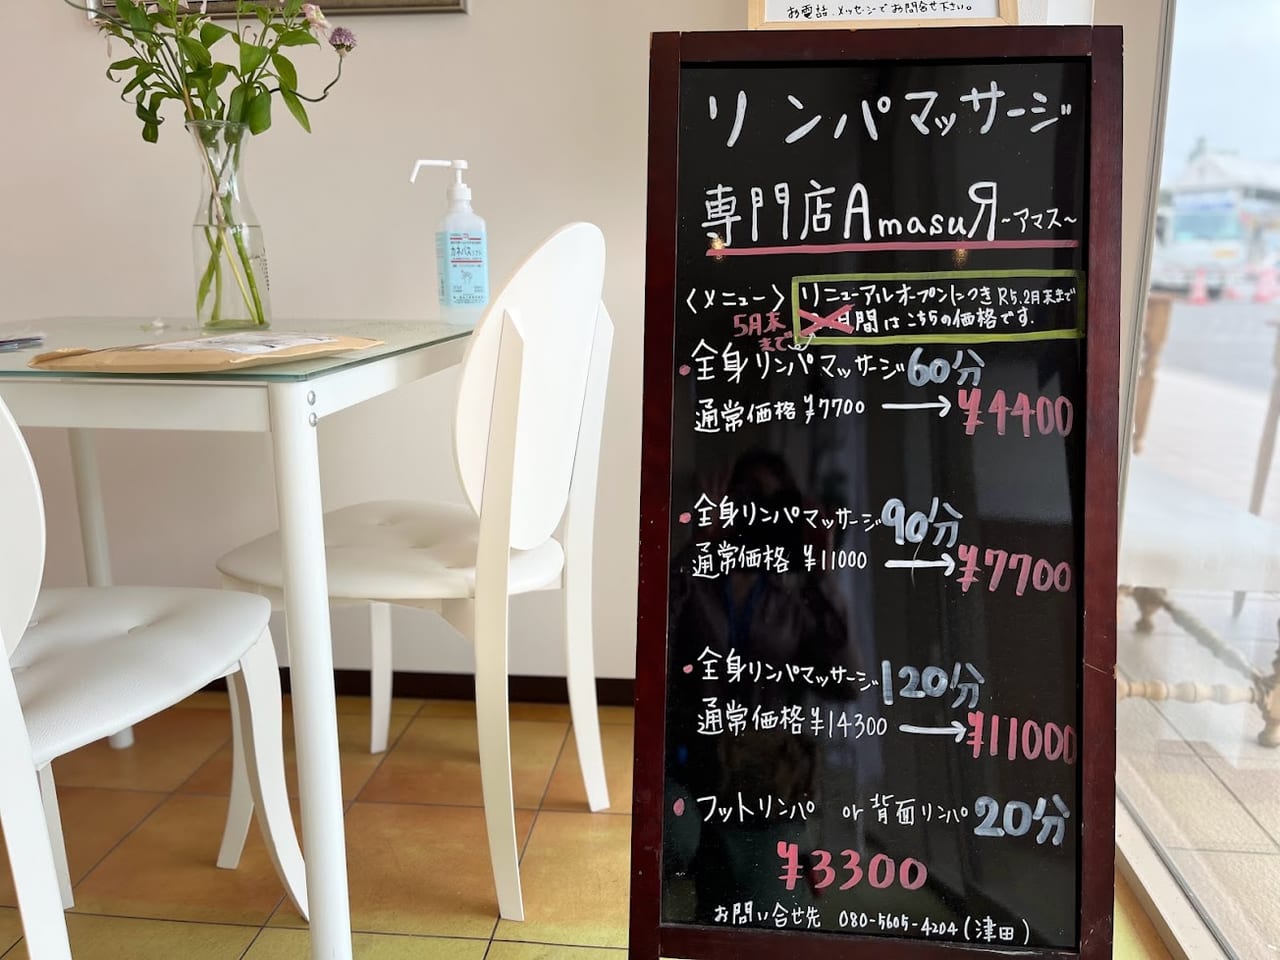 お電話、メッセージでお問合せ下さい。
リンパマッサージ
専門店AmasuЯ~アマス~
〈メニュー〉
リニューアルオープンにつきR5.2月末まで
月間はこちらの価格です.
5月末
まで
・全身リンパマッサージ60分
通常価格¥7700 → ¥4400
・全身リンパマッサージ90分
通常価格 ¥11000 → ¥7700
・全身リンパマッサージ120分
通常価格¥14300 → ¥11000
・フットリンパ or 背面リンパ 20分
¥3300
お問い合せ先 080-5605-4204(津田)
カネパス